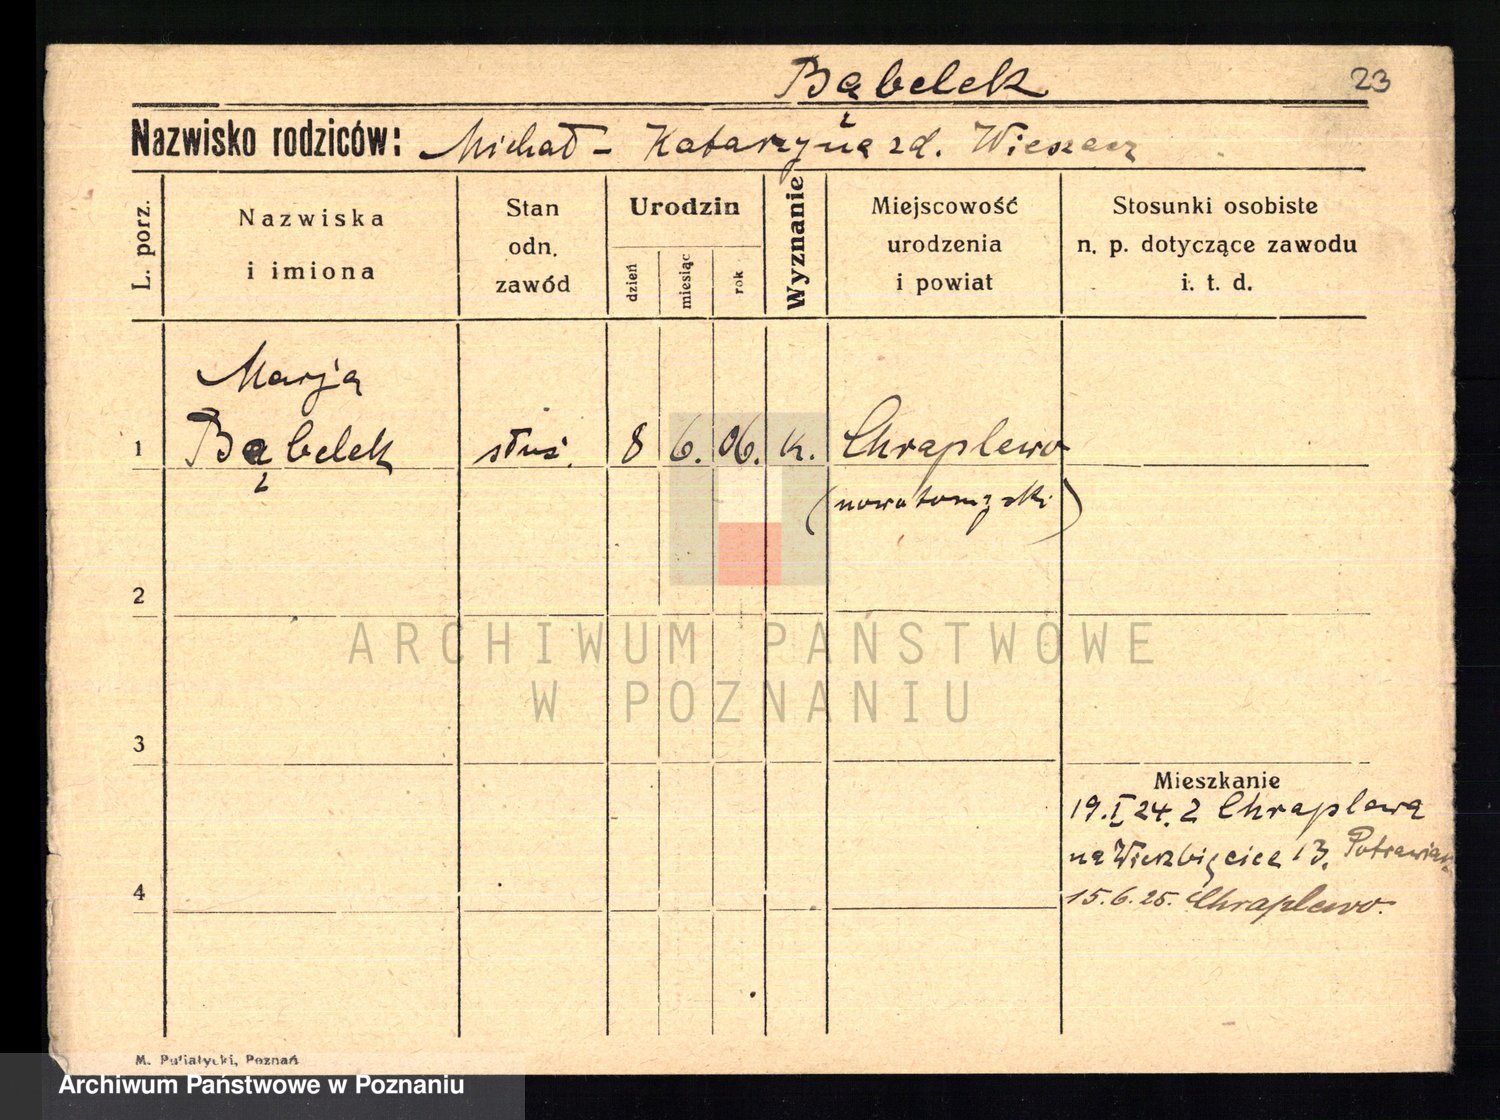 Bąbelek 23
Nazwisko rodziców: Michał - Katarzyna zd. Wieszecz
L. porz.
Nazwiska
i imiona
Stan
odn.
zawód
Urodzin
dzień
miesiąc
rok
Wyznanie
Miejscowość
urodzenia
i powiat
Stosunki osobiste
n. p. dotyczące zawodu
i. t. d.
Marja
1 Bąbelek służ. 8 6. 06. K. Chraplewo
(nowotomyski)
2
3
4
Mieszkanie
19.I 24. z Chraplewa
na Wierzbięcice 13.
15.6.25. Chraplewo.
ARCHIWUM PAŃSTWOWE
W POZNANIU
M. Putiatycki, Poznań
Archiwum Państwowe w Poznaniu